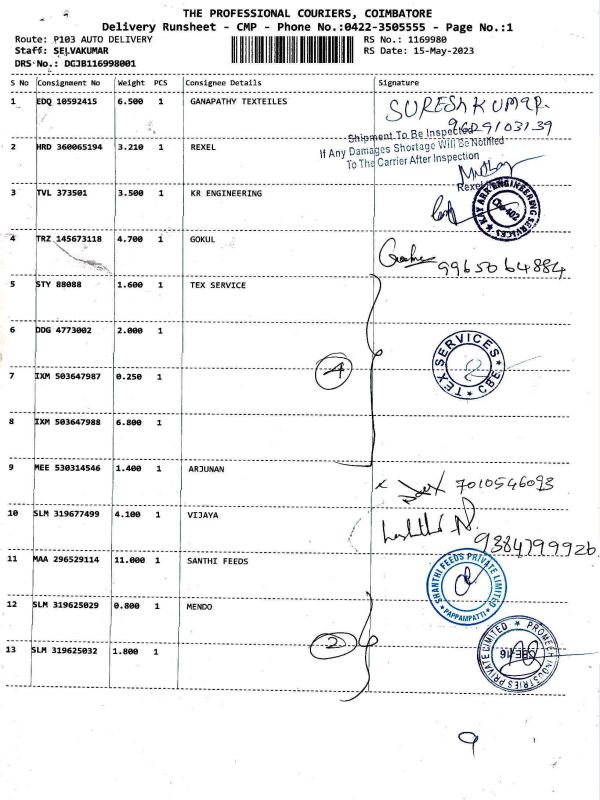 THE PROFESSIONAL COURIERS, COIMBATORE
Delivery Runsheet - CMP - Phone No.:0422-3505555 - Page No.:1
Route: P103 AUTO DELIVERY
RS No.: 1169980
Staff: SELVAKUMAR
RS Date: 15-May-2023
DRS No.: DGJB116998001
S No Consignment No Weight PCS Consignee Details Signature
1 EDQ 10592415 6.500 1 GANAPATHY TEXTEILES
SURESH KUMAR
Shipment To Be Inspected
If Any Damages Shortage Will Be Notified
To The Carrier After Inspection
2 HRD 360065194 3.210 1 REXEL
Rexel
3 TVL 373501 3.500 1 KR ENGINEERING
KAY ARR ENGINEERING SERVICES
4 TRZ 145673118 4.700 1 GOKUL
9965064884
5 STY 88088 1.600 1 TEX SERVICE
6 DDG 4773002 2.000 1
TEX SERVICES
CBE
4
7 IXM 503647987 0.250 1
8 IXM 503647988 6.800 1
9 MEE 530314546 1.400 1 ARJUNAN
7010546093
10 SLM 319677499 4.100 1 VIJAYA
9384799926
11 MAA 296529114 11.000 1 SANTHI FEEDS
SHANTHI FEEDS PRIVATE LIMITED
PAPPAMPATTI
12 SLM 319625029 0.800 1 MENDO
2
PROMECH INDUSTRIES PRIVATE LIMITED
CBE-16
13 SLM 319625032 1.800 1
9